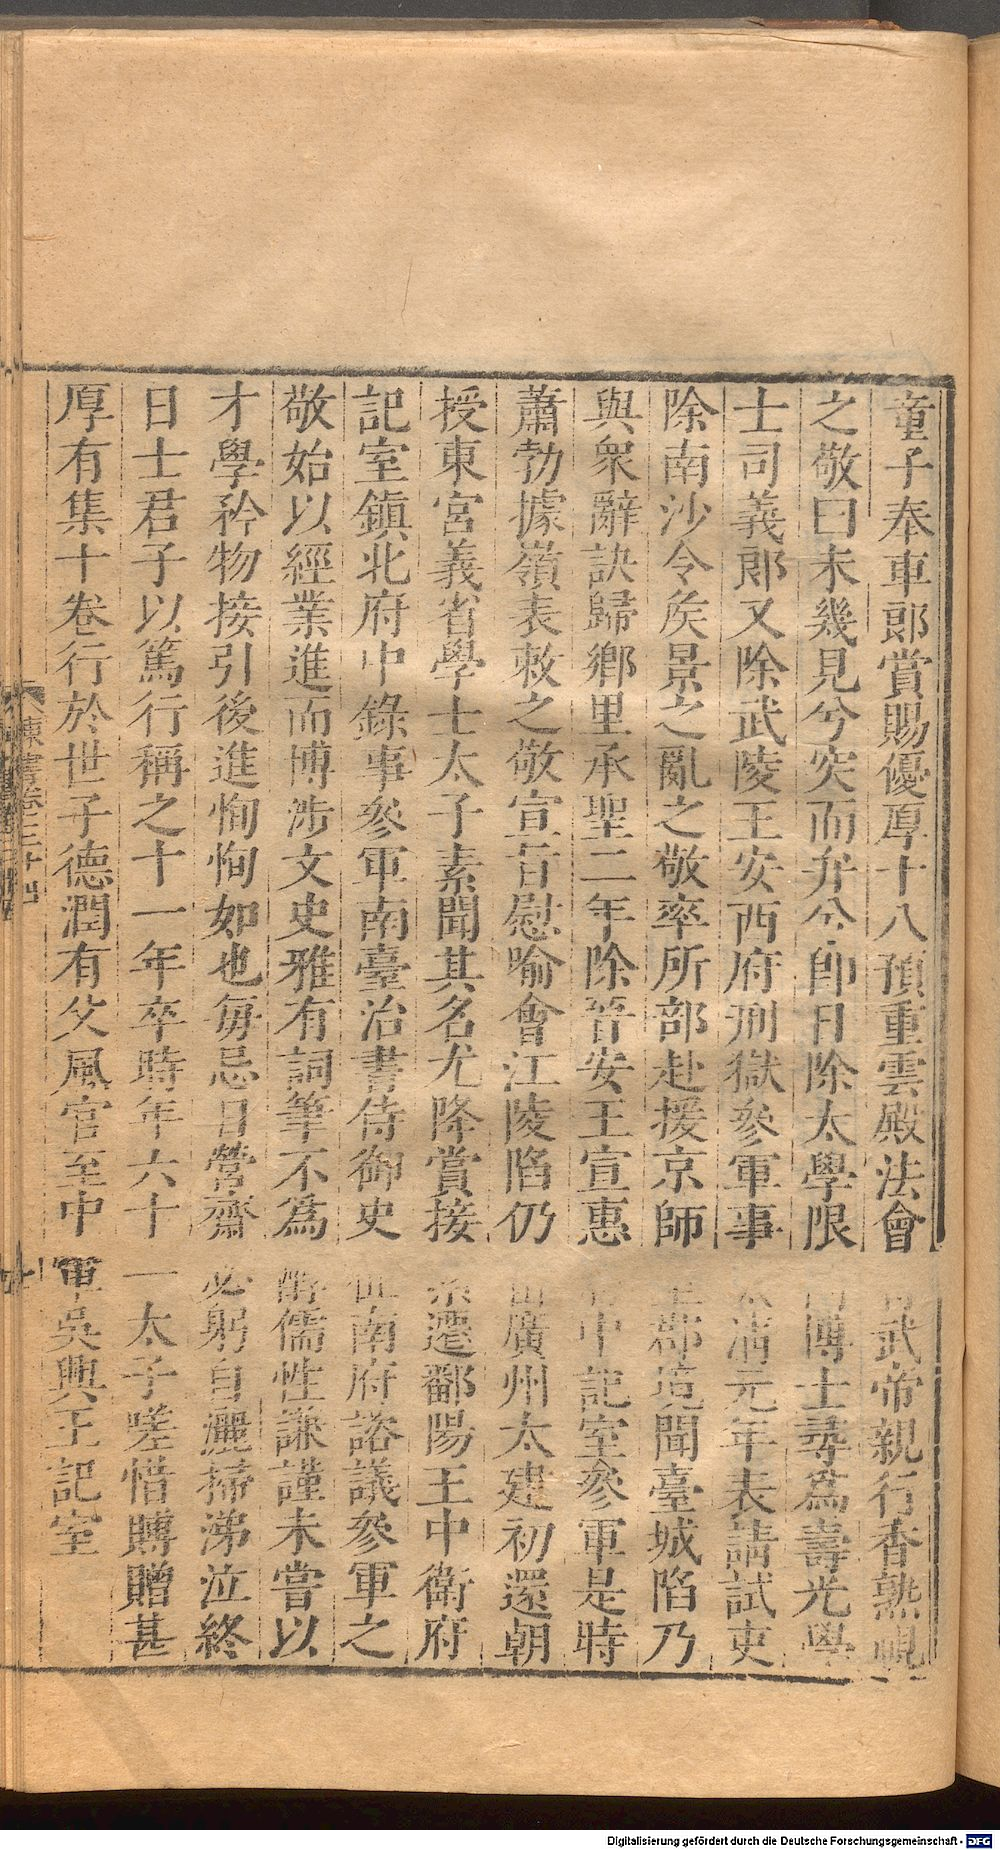 童子奉車郎賞賜優厚十八預重雲殿法會武帝親行香熟視
之敬曰未幾見兮突而弁兮即日除太學限博士尋為壽光學
士司義郎又除武陵王安西府刑獄參軍事元年表請試吏
除南沙令矦景之亂之敬率所部赴援京師郡境聞臺城陷乃
與衆辭訣歸鄉里承聖二年除晉安王宣惠中記室參軍是時
蕭勃據嶺表敕之敬宣旨慰喻會江陵陷仍廣州太建初還朝
授東宮義省學士太子素聞其名尤降賞接遷鄱陽王中衛府
記室鎮北府中錄事參軍南臺治書侍御史南府諮議參軍之
敬始以經業進而博涉文史雅有詞筆不為儒性謙謹未嘗以
才學矜物接引後進恂恂如也每忌日營齋必躬自灑掃涕泣終
日士君子以篤行稱之十一年卒時年六十一太子嗟惜賻贈甚
厚有集十卷行於世子德潤有父風官至中軍吳興王記室
陳書卷三十四
Digitalisierung gefördert durch die Deutsche Forschungsgemeinschaft - DFG